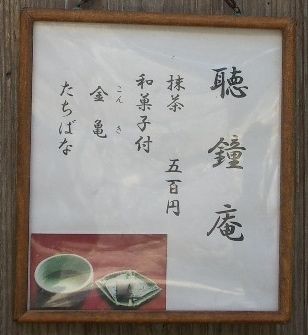 聴鐘庵
抹茶 五百円
和菓子付
金亀
こんき
たちばな